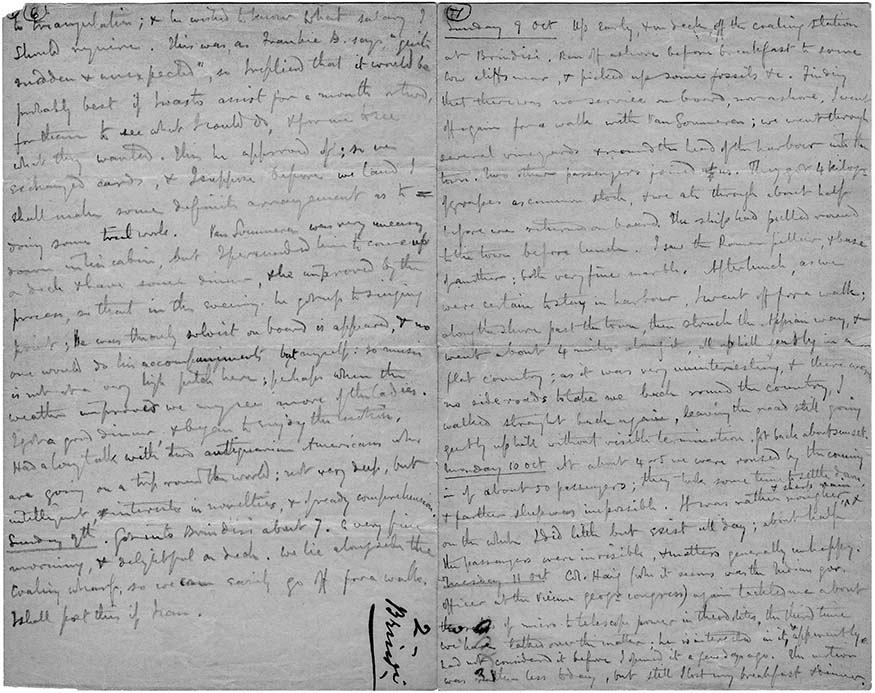 (6)
to triangulation; & he wished to know what salary I
should require. This was, as Frankie B. says, "quite
sudden & unexpected", so I replied that it would be
probably best if I was to assist for a month or two,
for them to see what I could do, & for me to see
what they wanted. This he approved of; so we
exchanged cards, & I suppose before we land I
shall make some definite arrangement as to =
doing some trial work. Van Sommeren was very uneasy
down in his cabin, but I persuaded him to come up
on deck & have some dinner, & he improved by the
process, so that in the evening he got up to singing
point; he was the only soloist on board it appeared, & no
one would do his accompaniments but myself: so music
is not at a very high pitch here; perhaps when the
weather improves we may see more of the ladies.
I got a good dinner & began to enjoy the motion,
Had a long talk with two antiquarian Americans who
are going on a trip round the world; not very deep, but
intelligent & interests in novelties, & of ready comprehension.
Sunday 9th. Got into Brindisi about 7. A very fine
morning, & delightful on deck. We lie alongside the
coaling wharf, so we can easily go off for a walk.
I shall post this if I can.
2 -
Brindisi
(7)
Sunday 9 Oct Up early, & on deck, off the coaling station
at Brindisi. Ran off ashore before breakfast to some
low cliffs near, & picked up some fossils &c. Finding
that there was no service on board, nor ashore, I went
off again for a walk with Van Sommeren; we went through
several vineyards & round the head of the harbour into the
town. Two other passengers joined us. They got 4 kilogs
of grapes as common stock, & we ate through about half
before we returned on board. The ship had pulled round
to the town before lunch. I saw the Roman pillar, & base
of another; both very fine marble. After lunch, as we
were certain to stay in harbour, I went off for a walk;
along the shore past the town, then struck the Appian way, &
went about 4 miles along it, all up hill gently in a
flat country; as it was very uninteresting, & there were
no side roads to take me back round the country, I
walked straight back again, leaving the road still going
gently up hill without visible termination. Got back about sunset.
Monday 10 Oct At about 4 or 5 we were roused by the coming
in of about 50 passengers; they take some time to settle down
& further sleep was impossible. It was rather rougher, &
on the whole I did little but exist all day; about half
the passengers were invisible, & matters generally unhappy.
Tuesday 11 Oct Col. Haig (who it seems was the Indian gov.
officer at the Vienna geog. congress) again tackled me about
the of micro to telescope power in theodolites, the third time
we have talked over the matter. he is interested in it, & apparently
had not considered it before I opened it a few days ago. The motion
was rather less today, but still I lost my breakfast & dinner.